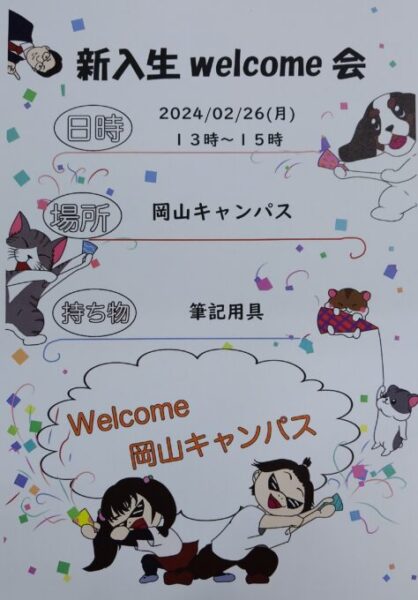 新入生 welcome 会
日時
2024/02/26(月)
13時～15時
場所
岡山キャンパス
持ち物
筆記用具
Welcome
岡山キャンパス